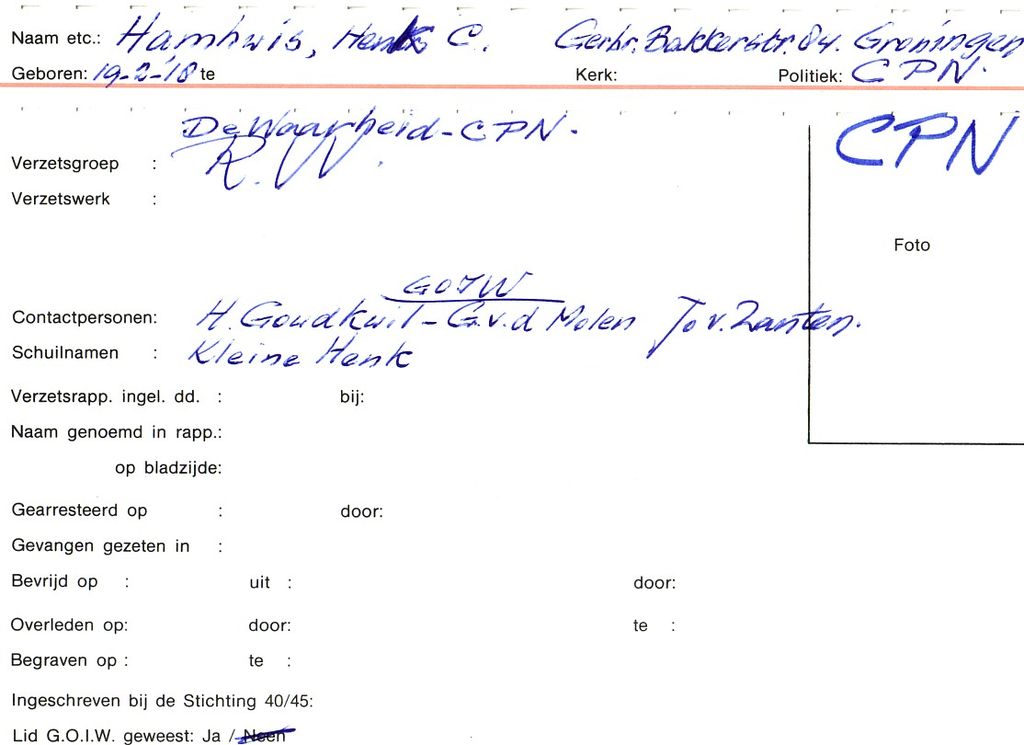 Naam etc.: Hamhuis, Henk C. Gerbr. Bakkerstr. 84. Groningen
Geboren: 19-2-'18 te Kerk: Politiek: CPN.
De Waarheid - CPN.
CPN
Verzetsgroep : R.W.
Verzetswerk :
Foto
GOIW
Contactpersonen: H. Goudkuil - G.v.d Molen Jo v. Zanten.
Schuilnamen : Kleine Henk
Verzetsrapp. ingel. dd. : bij:
Naam genoemd in rapp.:
op bladzijde:
Gearresteerd op : door:
Gevangen gezeten in :
Bevrijd op : uit : door:
Overleden op: door: te :
Begraven op : te :
Ingeschreven bij de Stichting 40/45:
Lid G.O.I.W. geweest: Ja / Neen